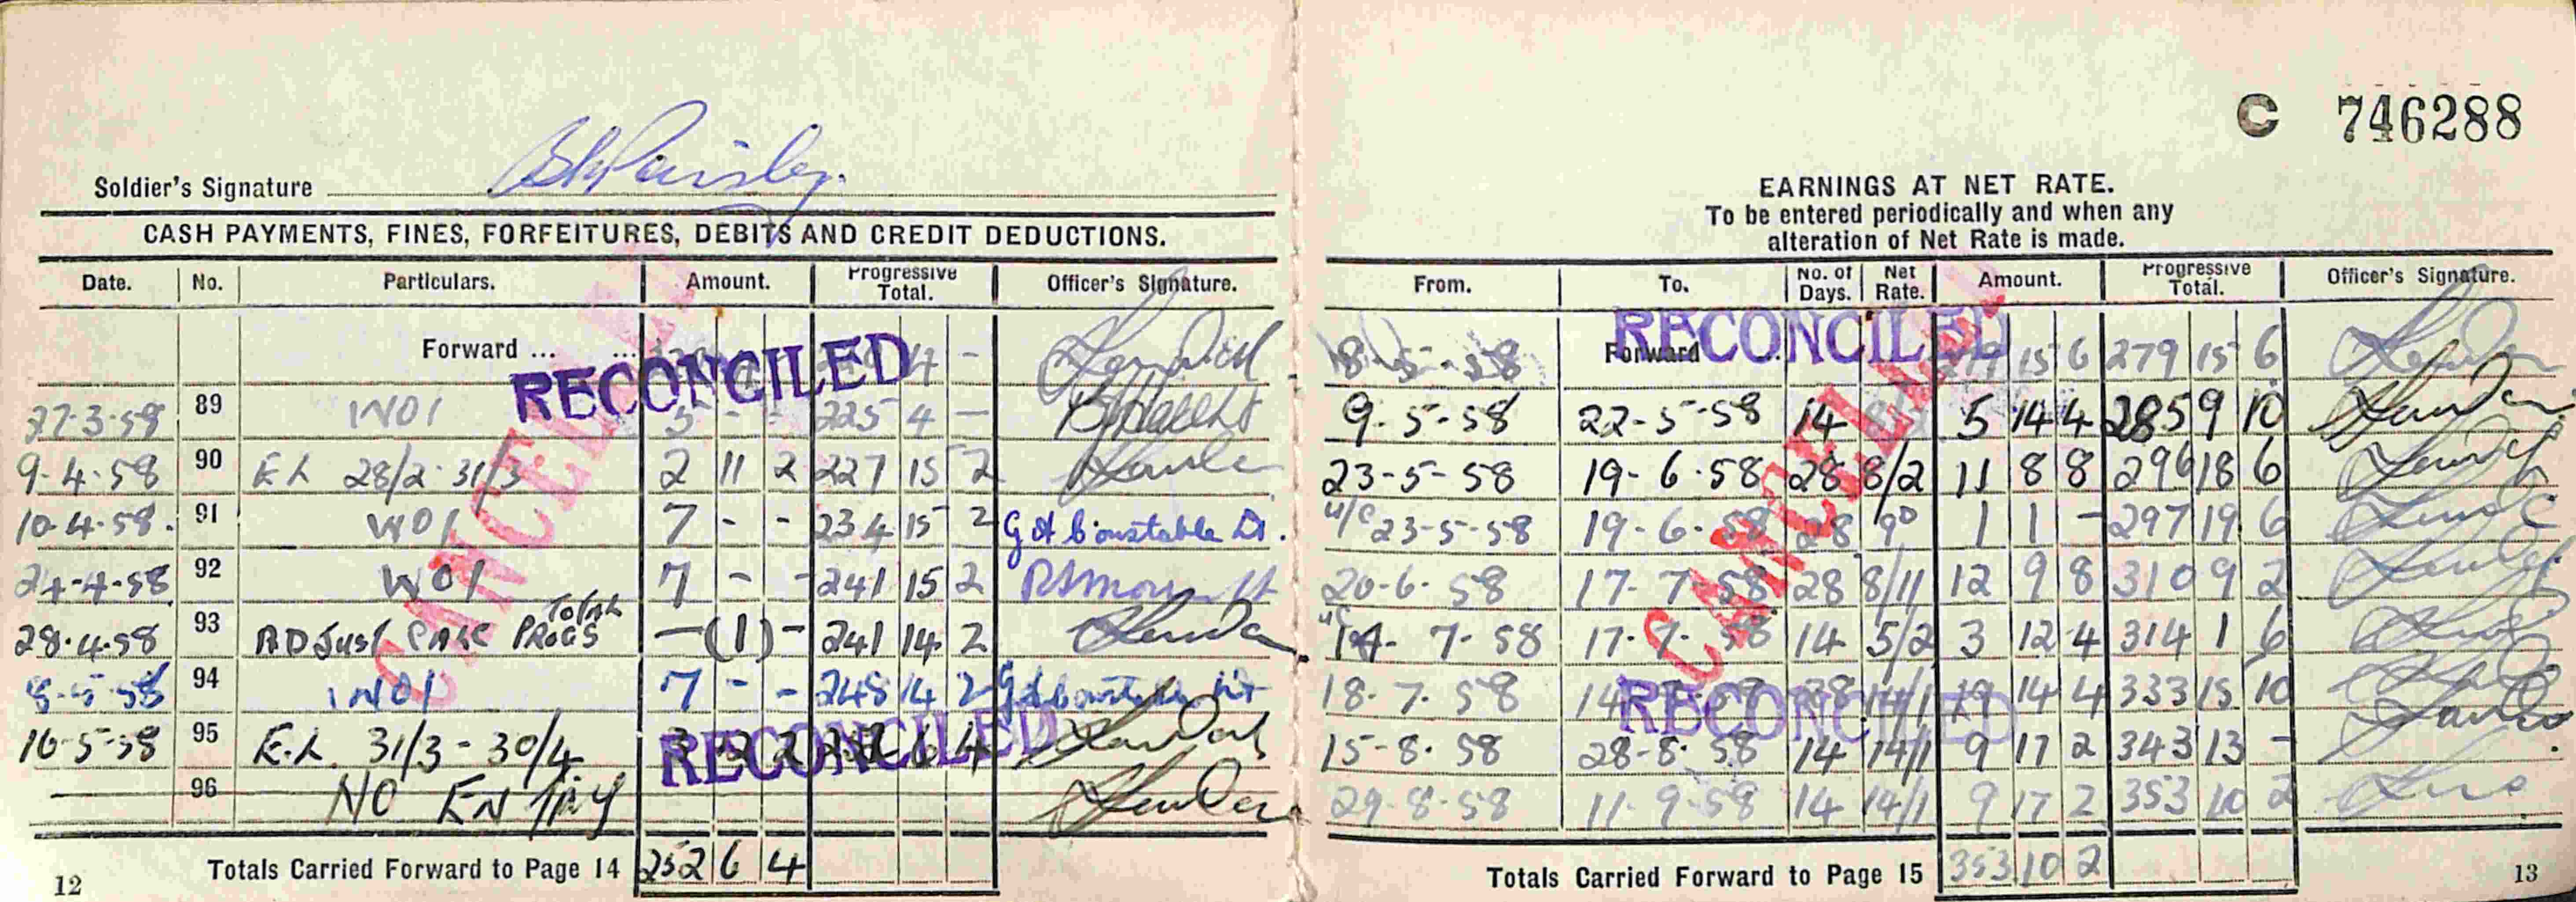 C 746288
Soldier's Signature
CASH PAYMENTS, FINES, FORFEITURES, DEBITS AND CREDIT DEDUCTIONS.
Date. No. Particulars. Amount. Progressive Total. Officer's Signature.
Forward ... ... 4 -
RECONCILED
27-3-58 89 WO1 5 - - 225 4 -
9-4-58 90 E.L 28/2-31/3 2 11 2 227 15 2
10-4-58. 91 WO1 7 - - 234 15 2 G A Constable Lt.
24-4-58 92 WO1 7 - - 241 15 2
28-4-58 93 ADJust PAGE PROGS Totals - (1) - 241 14 2
8-5-58 94 WO1 7 - - 248 14 2 G A Constable Lt
16-5-58 95 E.L. 31/3-30/4 2 6 4
RECONCILED
96 NO ENTRY
Totals Carried Forward to Page 14 252 6 4
12
CANCELLED
EARNINGS AT NET RATE.
To be entered periodically and when any
alteration of Net Rate is made.
From. To. No. of Days. Net Rate. Amount. Progressive Total. Officer's Signature.
RECONCILED
8-5-58 Forward 279 15 6 279 15 6
9-5-58 22-5-58 14 5 14 4 285 9 10
23-5-58 19-6-58 28 8/2 11 8 8 296 18 6
u/c 23-5-58 19-6-58 28 9D 1 1 - 297 19 6
20-6-58 17-7-58 28 8/11 12 9 8 310 9 2
u/c 4-7-58 17-7-58 14 5/2 3 12 4 314 1 6
18-7-58 14 28 14/1 19 14 4 333 15 10
RECONCILED
15-8-58 28-8-58 14 14/1 9 17 2 343 13 -
29-8-58 11-9-58 14 14/1 9 17 2 353 10 2
Totals Carried Forward to Page 15 353 10 2
13
CANCELLED